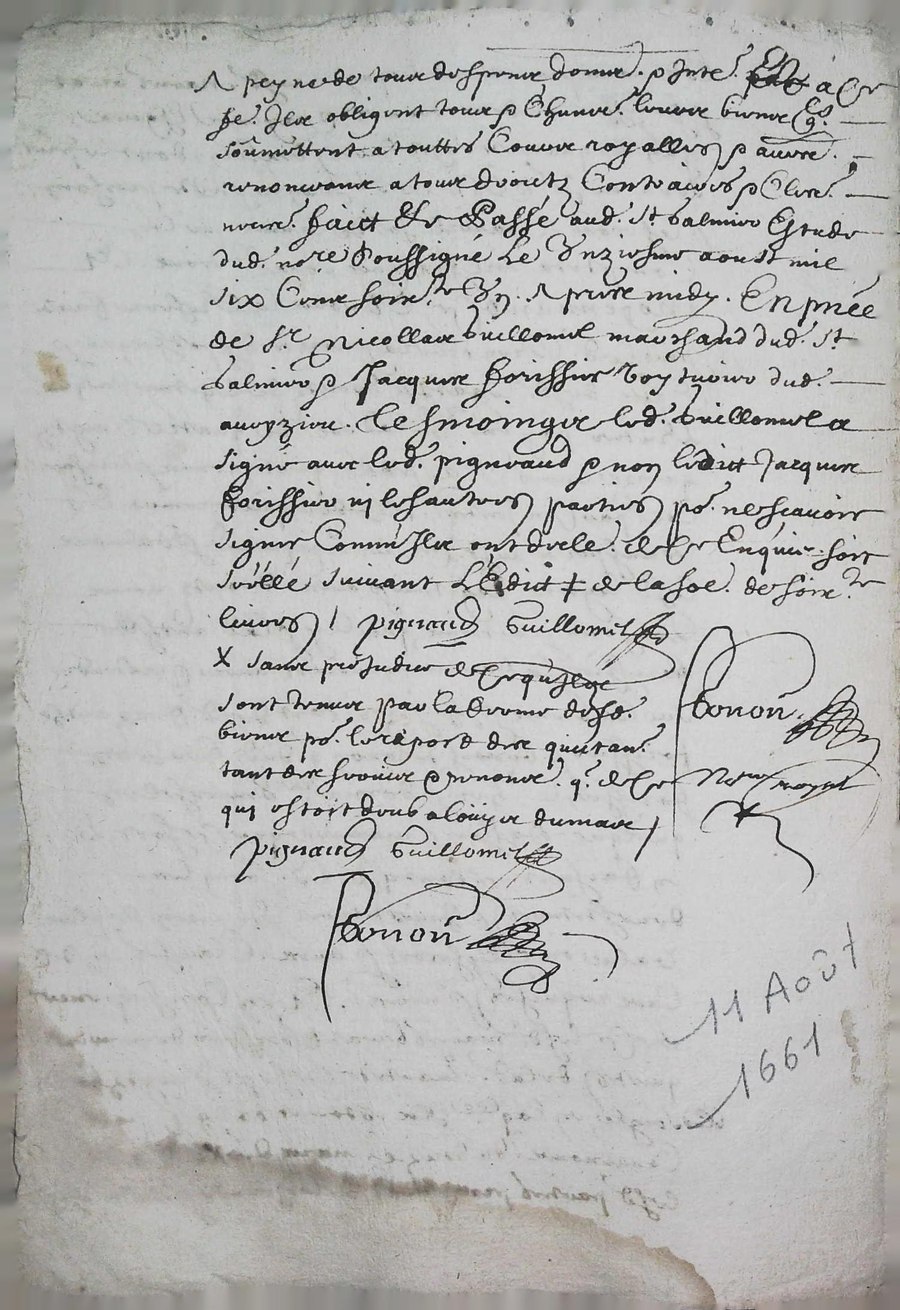 A peyne de tous despens domas. & Inte. et a Ce
fe. Ilz obligent tous & Chuns. leurs biens
soumettent a touttes Cours royalles & autres.
renonceans a tous droictz Contraires & Clses.
necres. faict & Passé aud. st galmier Estude
dud. nore soussigné Le Unziesme aoust mil
six Cens soixte Un. Apres midy. En pnce
de sr. Nicollas Guillomel marchand dud. st
galmier & Jacques forissier dud.
aueyzieu. tesmoingcz led. Guillomel a
signé auec led. pigneaud & non ledict Jacques
forissier ni les autres parties po. ne scauoir
signer Comme Ilz ont decle. de ce Enquis. soit
scéllé suiuant L'Edict ‡ de la so͞e. de soixte
liures / pignaud Guillomel
X sans preiudice de ce qu'Ilz
sont tenus par la ferme desd.
biens po. le repore des quictan.
tant des seruis & pnones. q. de Ce
qui estoit deub a louys dumas /
pignaud Guillomel
bonon
Nore royal
bonon
11 Août
1661